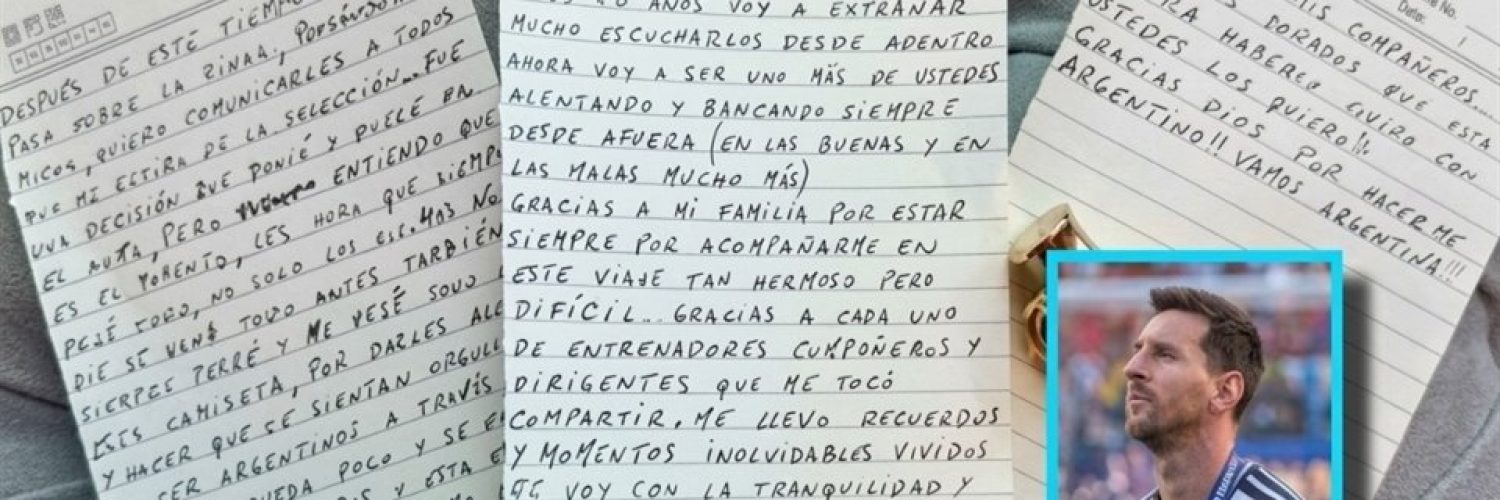 DESPUÉS DE ESTE TIEMPO
PASA SOBRE LA
MICOS, QUIERO COMUNICARLES A TODOS
QUE MI ESTIRA DE LA SELECCIÓN... FUE
UNA DECISIÓN QUE PONIÉ Y PUELÉ EN
EL AUTA, PERO ENTIENDO QUE
ES EL MORENTO, LES HORA QUE SIEMP
PEJÉ TORO, NO SOLO LOS NO
DIE SE VEN TOVO ANTES TARBIÉN
SIERPES PERRÉ Y ME VESÉ SOVO
ESTS CAMISETA, POR DARLES ALE
Y HACER QUE SE SIENTAN ORGULL
SER ARGENTINOS A TRAVÉS
UEDA POCO Y SE E
Y ESTA E
AÑOS VOY A EXTRAÑAR
MUCHO ESCUCHARLOS DESDE ADENTRO
AHORA VOY A SER UNO MÁS DE USTEDES
ALENTANDO Y BANCANDO SIEMPRE
DESDE AFUERA (EN LAS BUENAS Y EN
LAS MALAS MUCHO MÁS)
GRACIAS A MI FAMILIA POR ESTAR
SIEMPRE POR ACOMPAÑARME EN
ESTE VIAJE TAN HERMOSO PERO
DIFÍCIL... GRACIAS A CADA UNO
DE ENTRENADORES CUMPOÑEROS Y
DIRIGENTES QUE ME TOCÓ
COMPARTIR. ME LLEVO RECUERDOS
Y MOMENTOS INOLVIDABLES VIVIDOS
VOY CON LA TRANQUILIDAD Y
No.
Date:
MIS COMPAÑEROS...
DORADOS QUE ESTA
RA HABERLO CIVIRO CON
USTEDES LOS QUIERO!!!
GRACIAS DIOS POR HACERME
ARGENTINO!! VAMOS ARGENTINA!!!